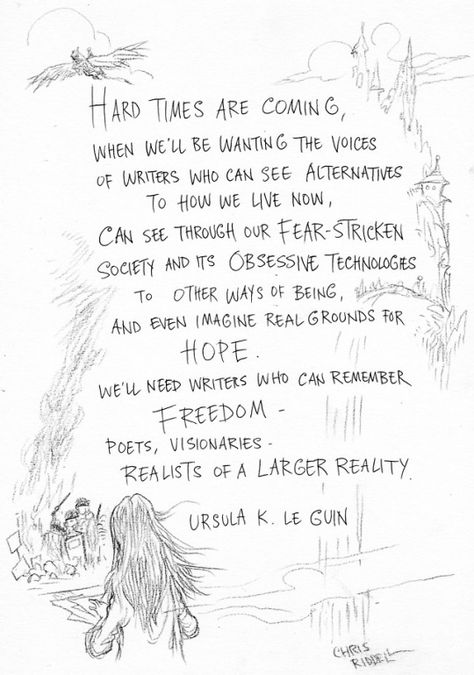 HARD TIMES ARE COMING,
WHEN WE'LL BE WANTING THE VOICES
OF WRITERS WHO CAN SEE ALTERNATIVES
TO HOW WE LIVE NOW,
CAN SEE THROUGH OUR FEAR-STRICKEN
SOCIETY AND ITS OBSESSIVE TECHNOLOGIES
TO OTHER WAYS OF BEING,
AND EVEN IMAGINE REAL GROUNDS FOR
HOPE.
WE'LL NEED WRITERS WHO CAN REMEMBER
FREEDOM -
POETS, VISIONARIES -
REALISTS OF A LARGER REALITY.
URSULA K. LE GUIN
CHRIS
RIDDELL